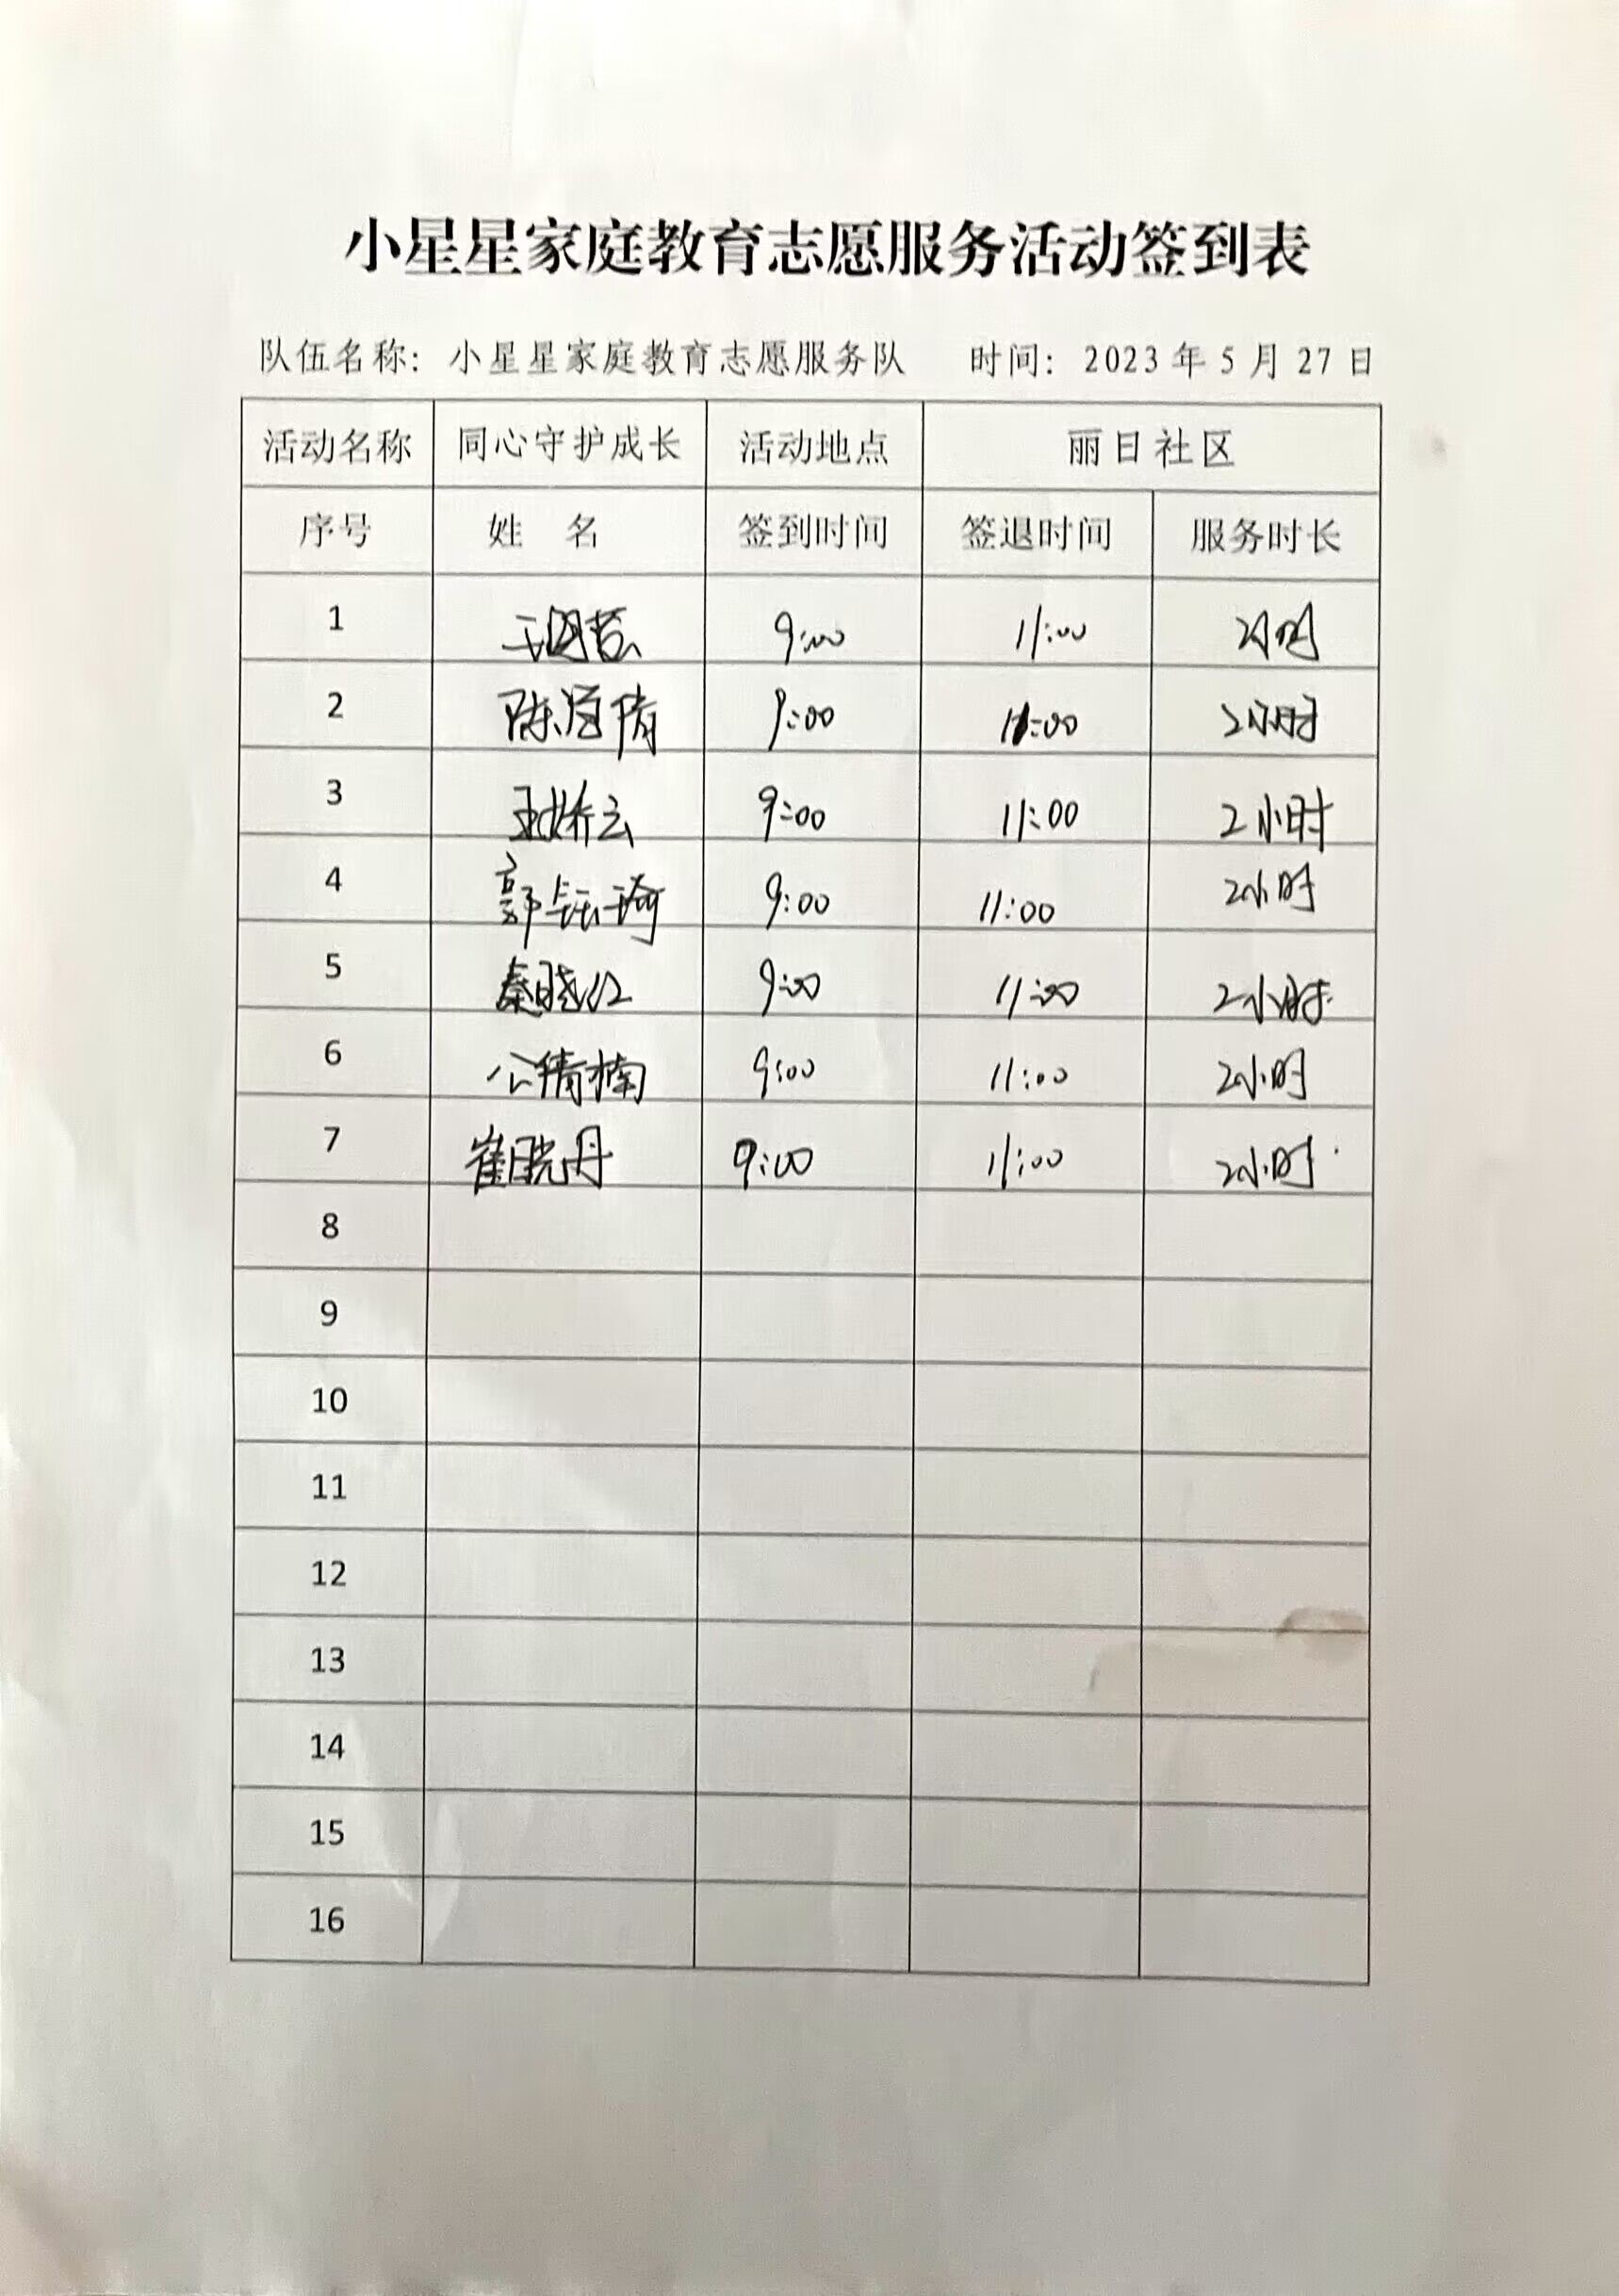 小星星家庭教育志愿服务活动签到表
队伍名称：小星星家庭教育志愿服务队 时间：2023年5月27日
活动名称 同心守护成长 活动地点 丽日社区
序号 姓名 签到时间 签退时间 服务时长
1 9:00 11:00 2小时
2 陈 倩 9:00 11:00 2小时
3 王娇云 9:00 11:00 2小时
4 郭钰琦 9:00 11:00 2小时
5 秦晓红 9:00 11:00 2小时
6 公倩楠 9:00 11:00 2小时
7 崔晓丹 9:00 11:00 2小时
8
9
10
11
12
13
14
15
16